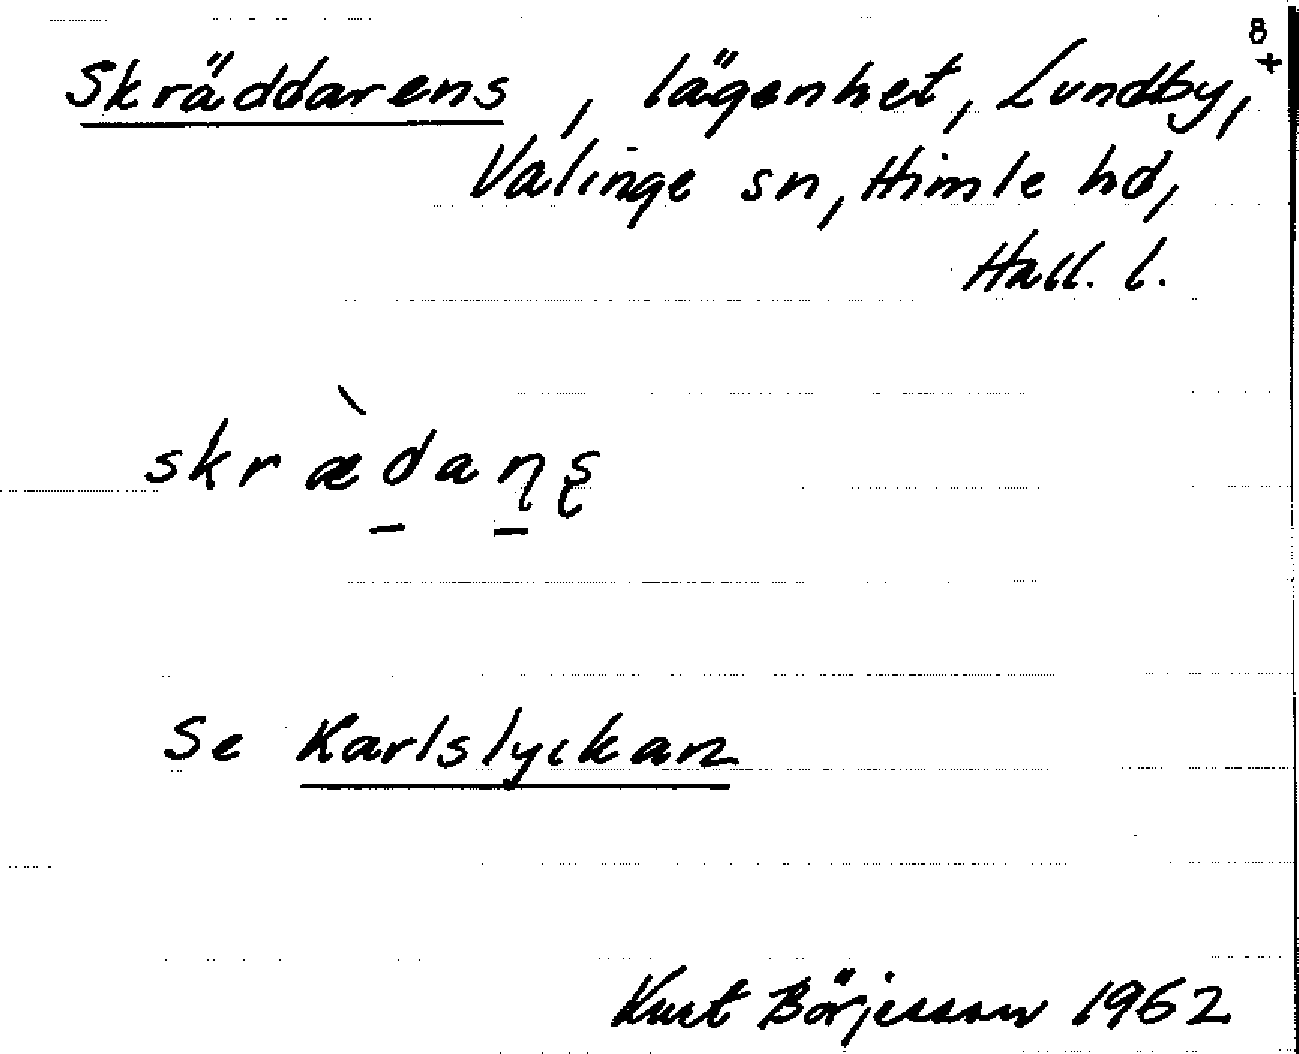 8
+
Skräddarens, lägenhet, Lundby,
Valinge sn, Himle hd,
Hall. l.
skræ̀da̠ɳ̠ʂ
Se Karlslyckan
Kurt Börjesson 1962